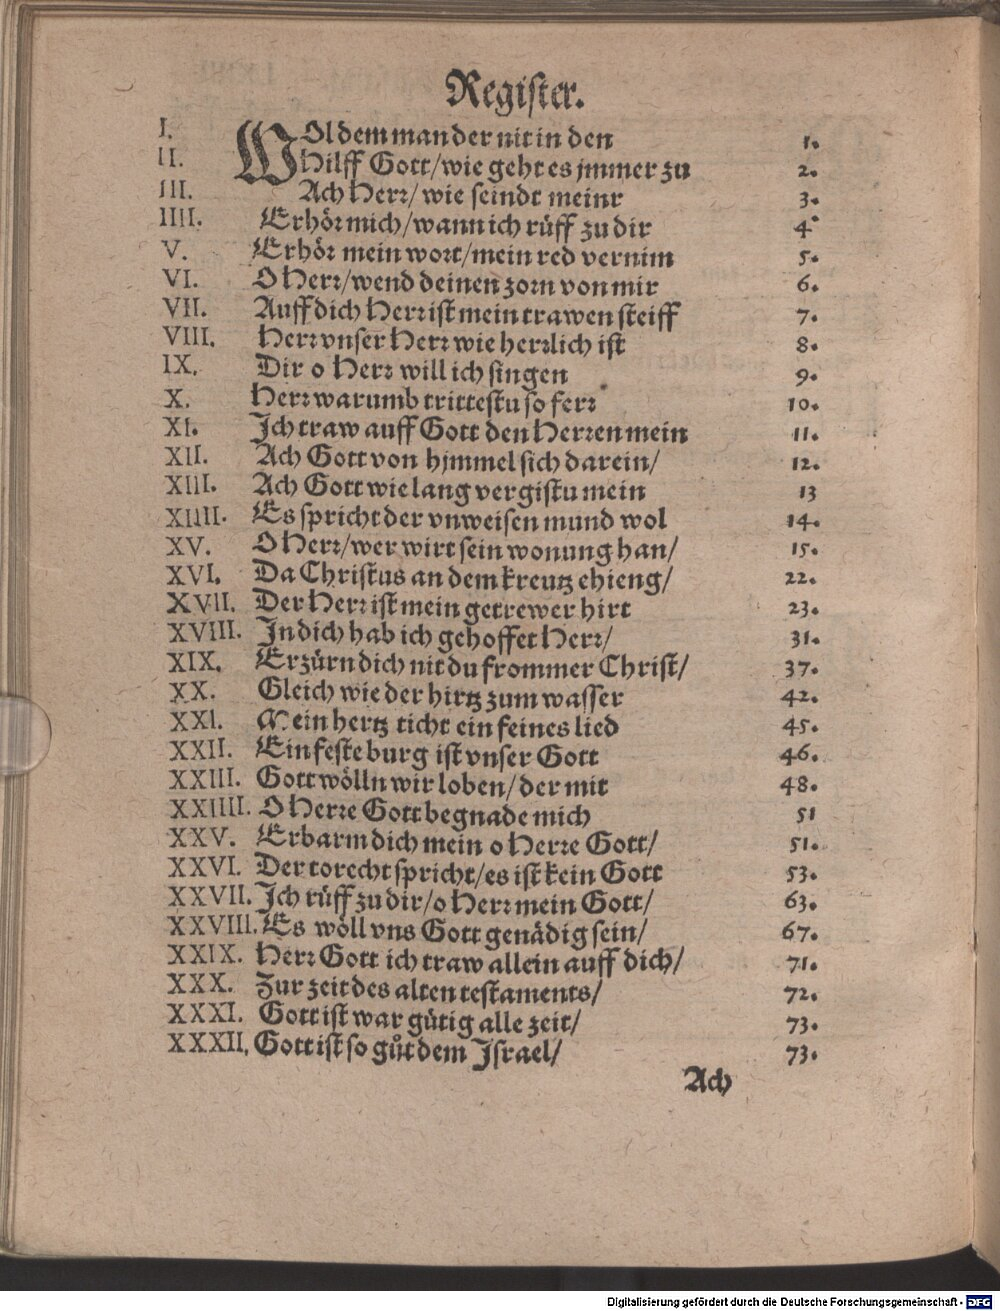 Register.
I. WOl dem man der nit in den 1.
II. Hilff Gott/wie geht es jmmer zu 2.
III. Ach Herr/wie seindt meinr 3.
IIII. Erhör mich/wann ich rüff zu dir 4
V. Erhör mein wort/mein red vernim 5.
VI. O Herr/wend deinen zorn von mir 6.
VII. Auff dich Herr ist mein trawen steiff 7.
VIII. Herr vnser Herr wie herrlich ist 8.
IX. Dir o Herr will ich singen 9.
X. Herr warumb trittestu so ferr 10.
XI. Ich traw auff Gott den Herren mein 11.
XII. Ach Gott von hjmmel sich darein/ 12.
XIII. Ach Gott wie lang vergistu mein 13
XIIII. Es spricht der vnweisen mund wol 14.
XV. O Herr/wer wirt sein wonung han/ 15.
XVI. Da Christus an dem kreutz ehieng/ 22.
XVII. Der Herr ist mein getrewer hirt 23.
XVIII. In dich hab ich gehoffet Herr/ 31.
XIX. Erzürn dich nit du frommer Christ/ 37.
XX. Gleich wie der hirtz zum wasser 42.
XXI. Mein hertz ticht ein feines lied 45.
XXII. Ein feste burg ist vnser Gott 46.
XXIII. Gott wölln wir loben/der mit 48.
XXIIII. O Herre Gott begnade mich 51
XXV. Erbarm dich mein o Herre Gott/ 51.
XXVI. Der torecht spricht/es ist kein Gott 53.
XXVII. Ich rüff zu dir/o Herr mein Gott/ 63.
XXVIII. Es wöll vns Gott genädig sein/ 67.
XXIX. Herr Gott ich traw allein auff dich/ 71.
XXX. Zur zeit des alten testaments/ 72.
XXXI. Gott ist war gütig alle zeit/ 73.
XXXII. Gott ist so gůt dem Israel/ 73.
Ach
Digitalisierung gefördert durch die Deutsche Forschungsgemeinschaft - DFG